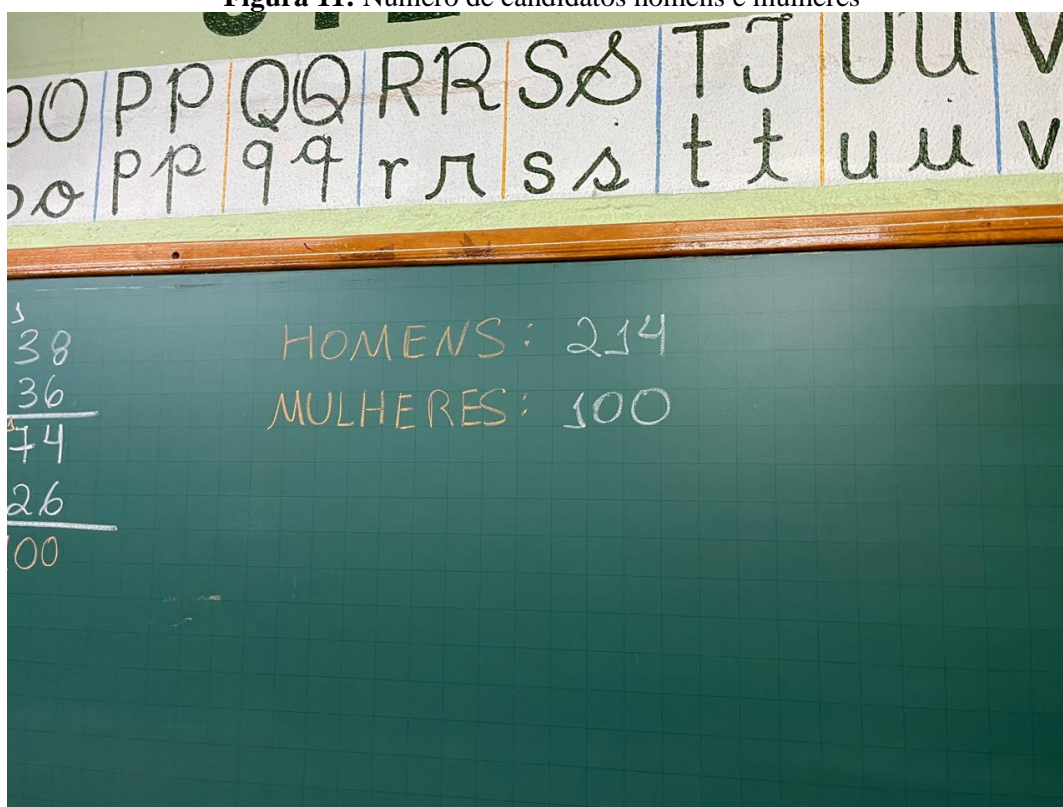 Figura 11: Número de candidatos homens e mulheres
OO PP QQ RR SS TT UU V
oo pp qq rr ss tt uu v
1
38
36
74
26
100
HOMENS: 214
MULHERES: 100